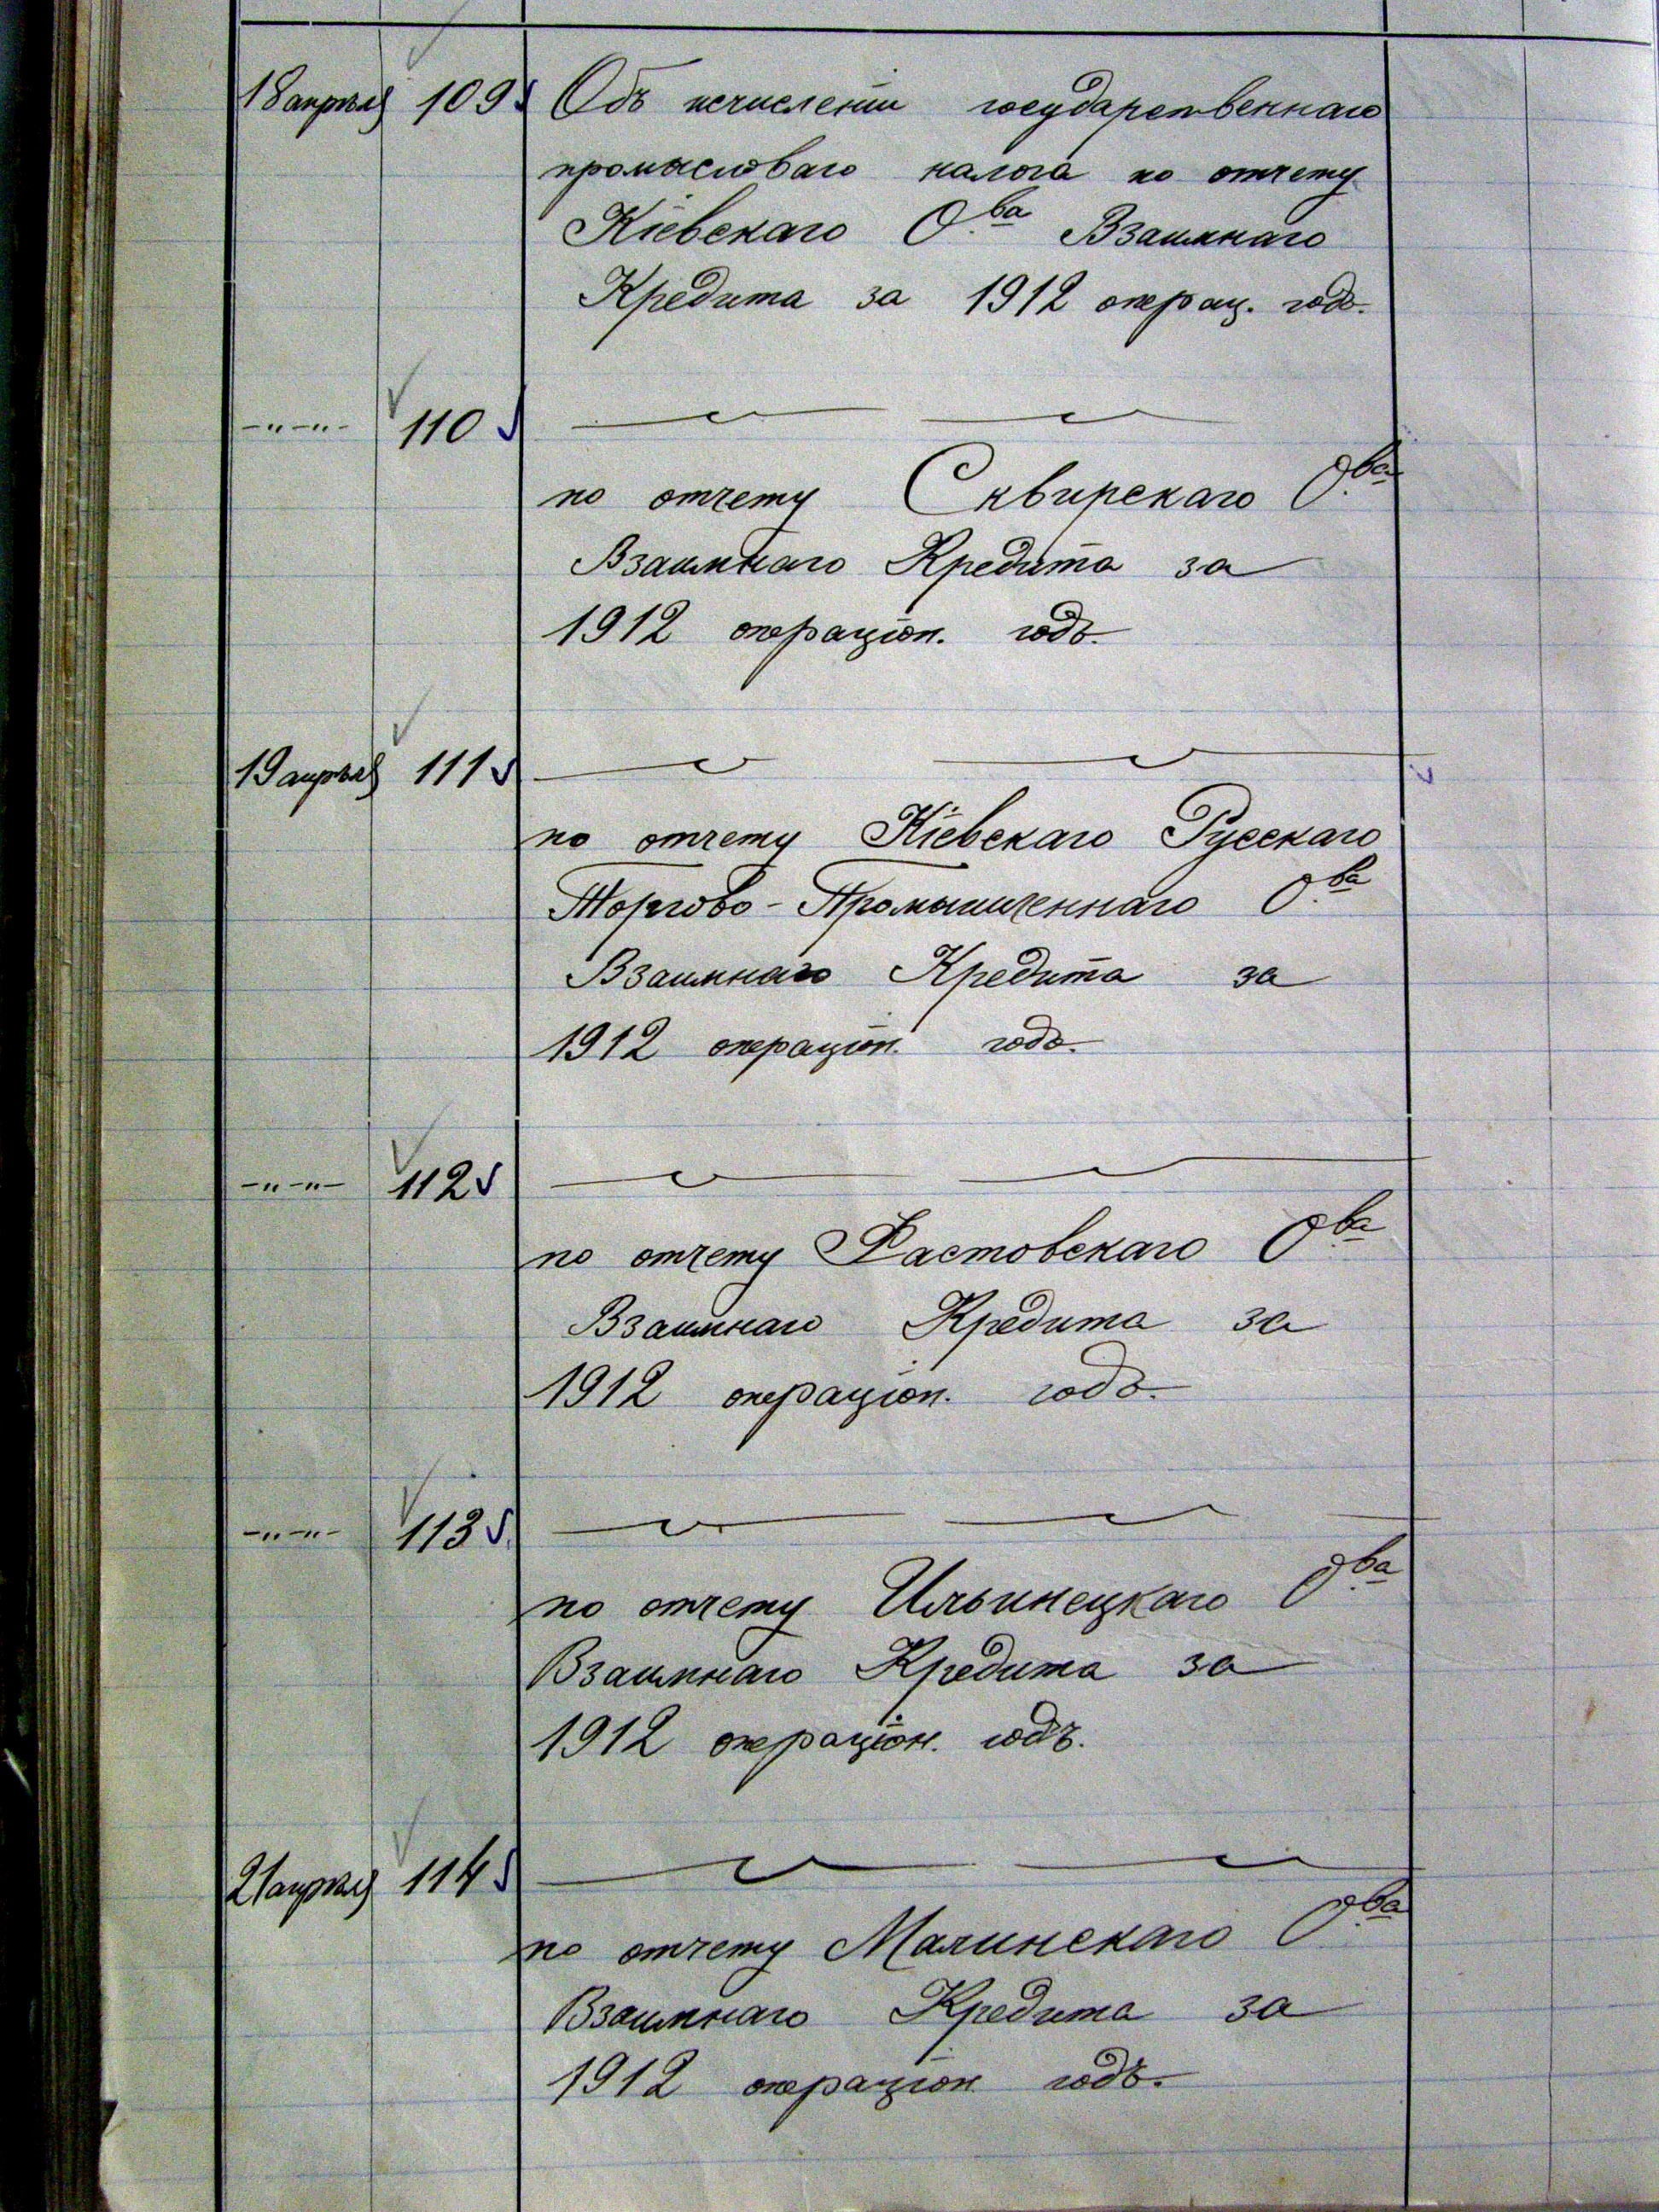 18 апрѣля 109 Объ исчисленіи государственнаго
промысловаго налога по отчету
Кіевскаго О-ва Взаимнаго
Кредита за 1912 операц. годъ.
-"-"- 110
по отчету Сквирскаго О-ва
Взаимнаго Кредита за
1912 операціон. годъ.
19 апрѣля 111
по отчету Кіевскаго Русскаго
Торгово-Промышленнаго О-ва
Взаимнаго Кредита за
1912 операціон. годъ.
-"-"- 112
по отчету Фастовскаго О-ва
Взаимнаго Кредита за
1912 операціон. годъ.
-"-"- 113
по отчету Ильинецкаго О-ва
Взаимнаго Кредита за
1912 операціон. годъ.
21 апрѣля 114
по отчету Малинскаго О-ва
Взаимнаго Кредита за
1912 операціон годъ.